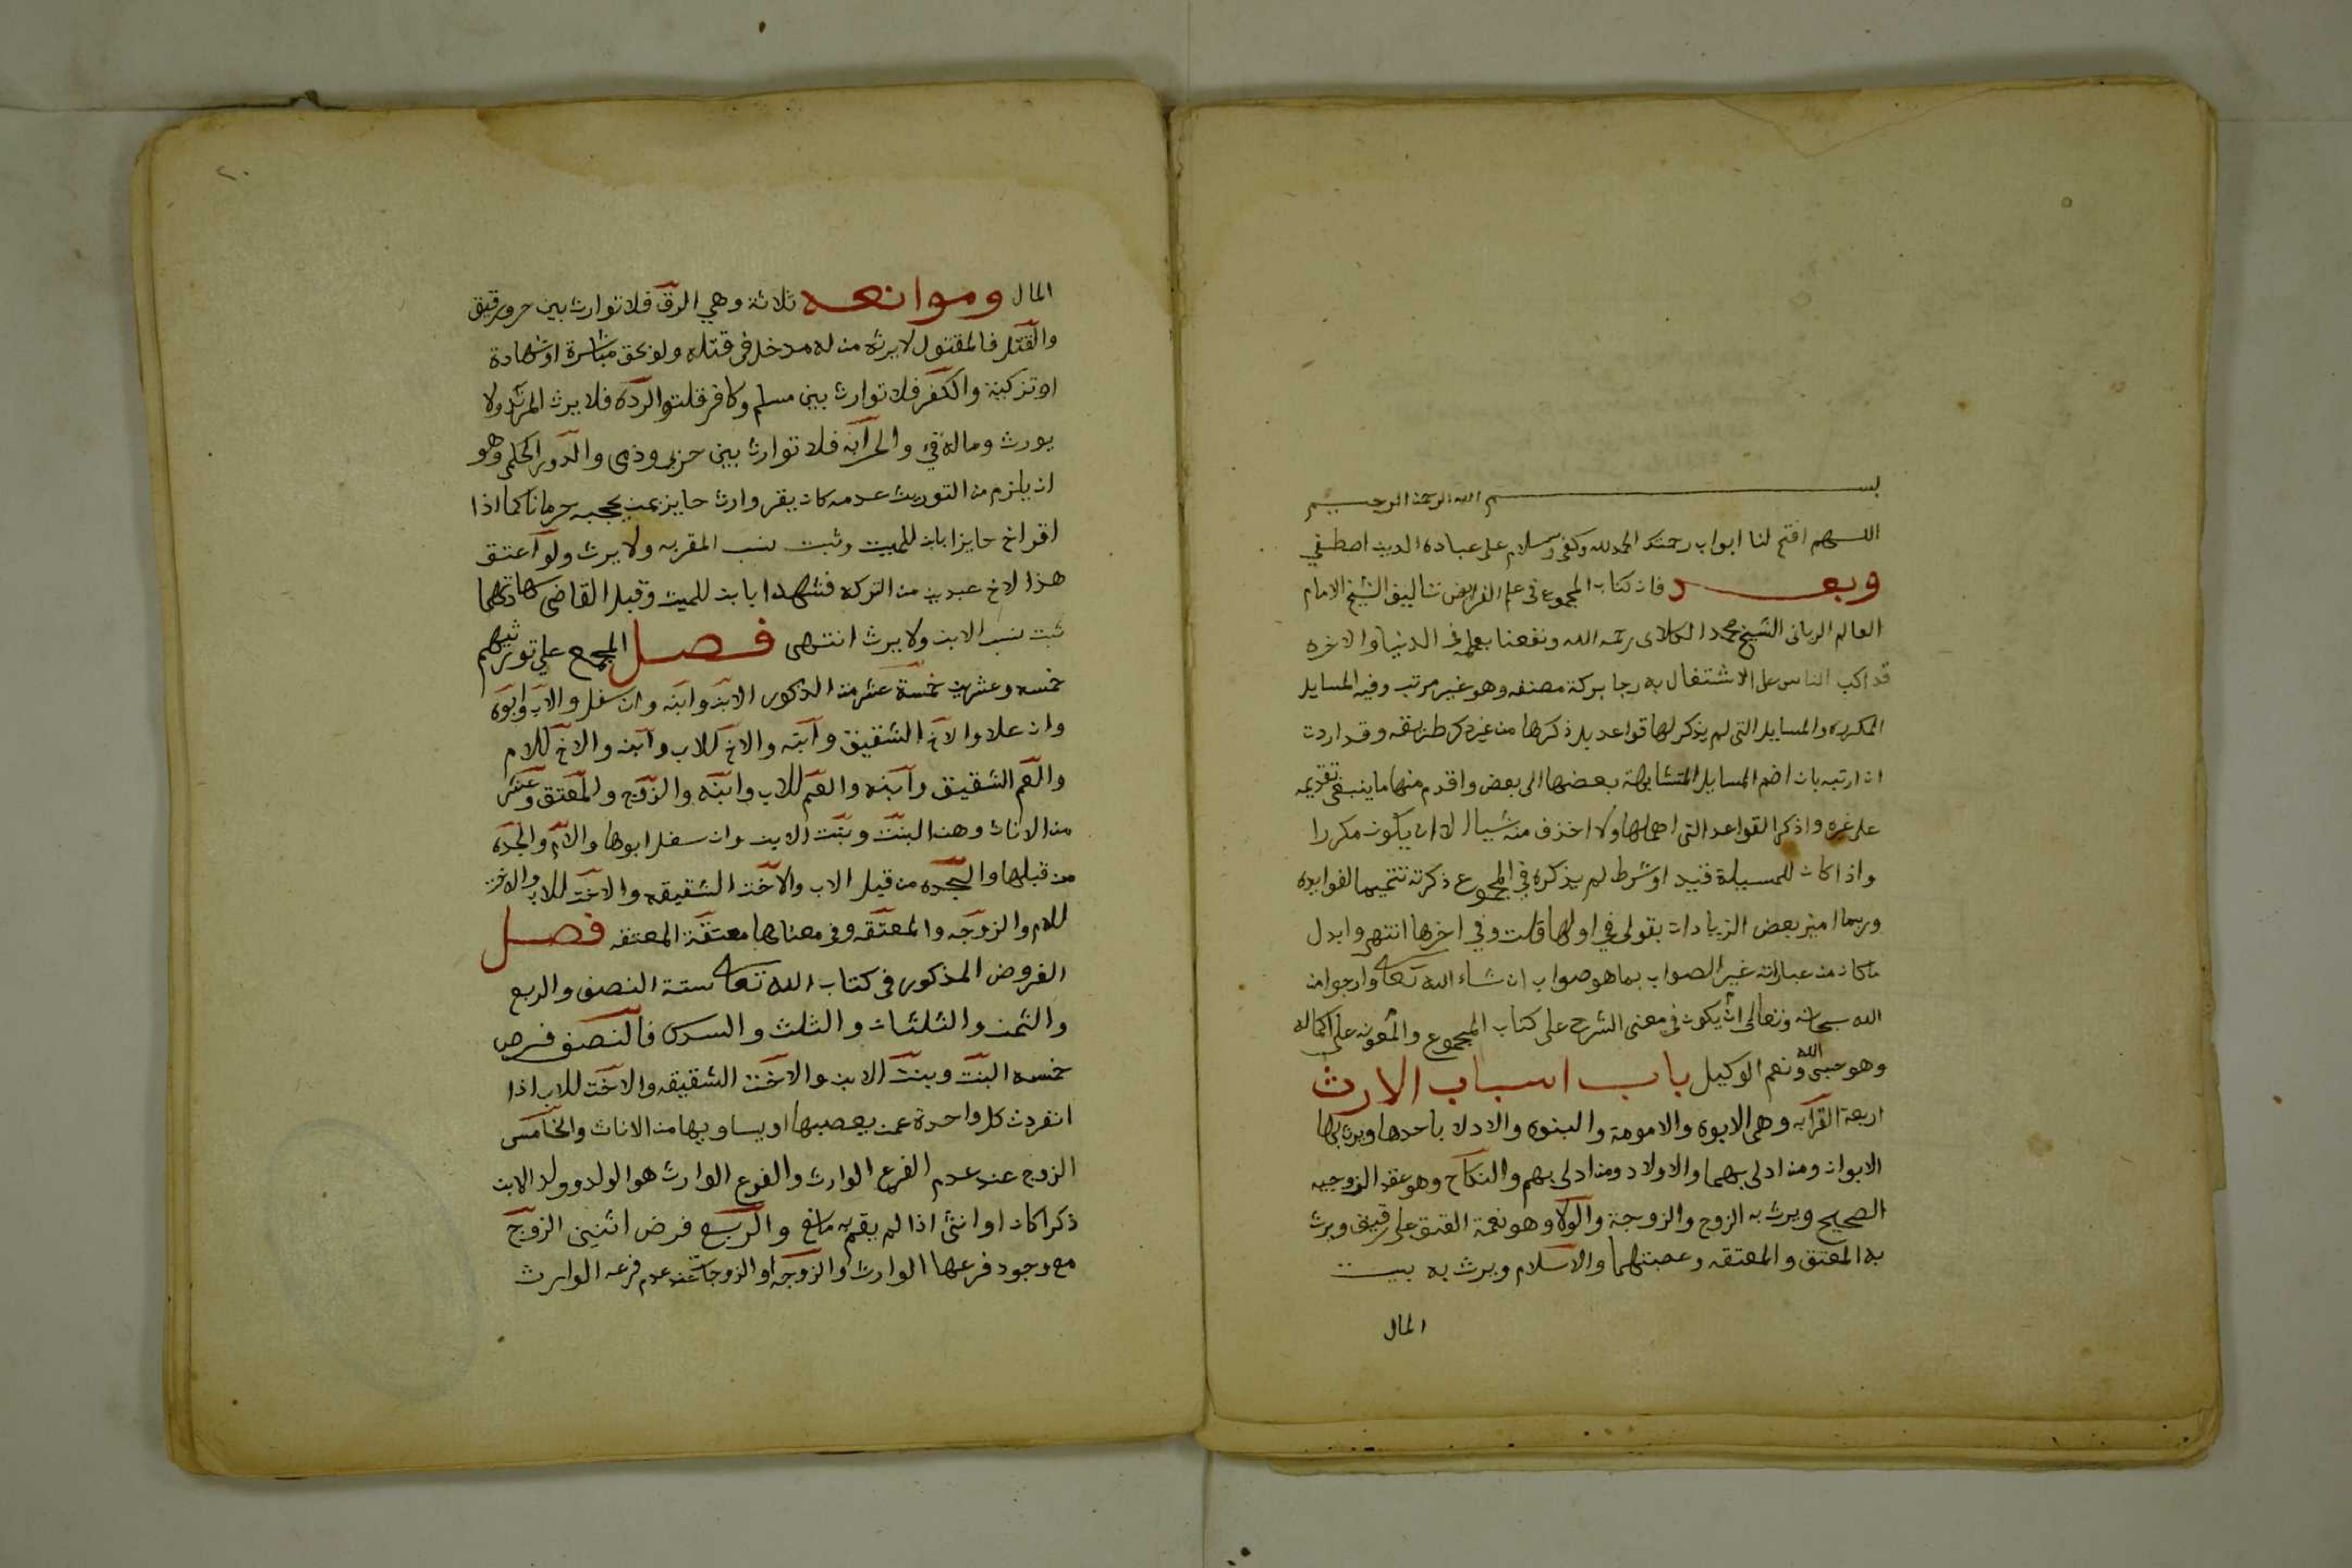 بسم الله الرحمن الرحيم
اللهم افتح لنا ابواب رحمتك الحمد لله وكفى وسلام على عباده الدين اصطفي
وبعد فان كتاب المجموع في علم الفرايض تاليف الشيخ الامام
العالم الرباني الشيخ محمد الكلاى رحمه الله ونفعنا بعلمه في الدنيا والاخره
قد اكب الناس على الاشتغال به رجا بركة مصنفه وهو غير مرتب وفيه المسايل
المكرره والمسايل التى لم يذكر لها قواعد بل ذكرها من غير ذكر طريقه وقد اردت
ان ارتبه بان اضم المسايل المتشابهة بعضها الى بعض واقدم منها ما ينبغي تقديمه
على غيره واذكر القواعد التى اهملها ولا احذف منه شيا الا ان يكون مكررا
واذا كان للمسيلة قيد او شرط لم يذكره في المجموع ذكرته تتميما لفوايده
وربما اميز بعض الزيادات بقولى في اولها قلت وفي اخرها انتهى وابدل
ما كان من عباراته غير الصواب بما هو صواب ان شاء الله تعالى وارجوا من
الله سبحانه وتعالى ان يكون في معنى الشرح على كتاب المجموع والمعونه على اكماله
وهو حسبى الله ونعم الوكيل باب اسباب الارث
اربعة القرابه وهي الابوه والامومة والبنوه والادلا باحدها ويرث بها
الابوان ومن ادلى بهما والاولاد ومن ادلى بهم والنكاح وهو عقد الزوجيه
الصحيح ويرث به الزوج والزوجة والولا وهو نعمة العتق على رقيق ويرث
به المعتق والمعتقه وعصبتهما والاسلام ويرث به بيت
المال
٢٠
المال وموانعه ثلاثة وهي الرق فلا توارث بين حر ورقيق
والقتل فالمقتول لا يرثه من له مدخل في قتله ولو بحق مباشرة او شهادة
او تزكية والكفر فلا توارث بين مسلم وكافر قلت والرده فلا يرث المرتد ولا
يورث وماله فيء والحرابه فلا توارث بين حربى وذمى والدور الحكمي وهو
ان يلزم من التوريث عدمه كان يقر وارث حايز بمن يحجبه حرمانا كما اذا
اقر اخ حايز بابن للميت وثبت نسب المقر به ولا يرث ولو اعتق
هذا الاخ عبدين من التركه فشهدا بابن للميت وقبل القاضى شهادتهما
ثبت نسب الابن ولا يرث انتهى فصل المجمع علي توريثهم
خمسه وعشرين خمسة عشر من الذكور الابن وابنه وان سفل والاب وابوه
وان علا والاخ الشقيق وابنه والاخ للاب وابنه والاخ للام
والعم الشقيق وابنه والعم للاب وابنه والزوج والمعتق وعشر
من الاناث وهن البنت وبنت الابن وان سفل ابوها والام والجده
من قبلها والجده من قبل الاب والاخت الشقيقه والاخت للاب والاخت
للام والزوجه والمعتقه وفي معناها معتقة المعتقه فصل
الفروض المذكور في كتاب الله تعالى ستة النصف والربع
والثمن والثلثان والثلث والسدس فالنصف فرض
خمسه البنت وبنت الابن والاخت الشقيقه والاخت للاب اذا
انفردت كل واحدة عمن يعصبها او يساويها من الاناث والخامس
الزوج عند عدم الفرع الوارث والفرع الوارث هو الولد وولد الابن
ذكرا كان او انثى اذا لم يقم به مانع والربع فرض اثنين الزوج
مع وجود فرعها الوارث والزوجه او الزوجات عند عدم فرعه الوارث